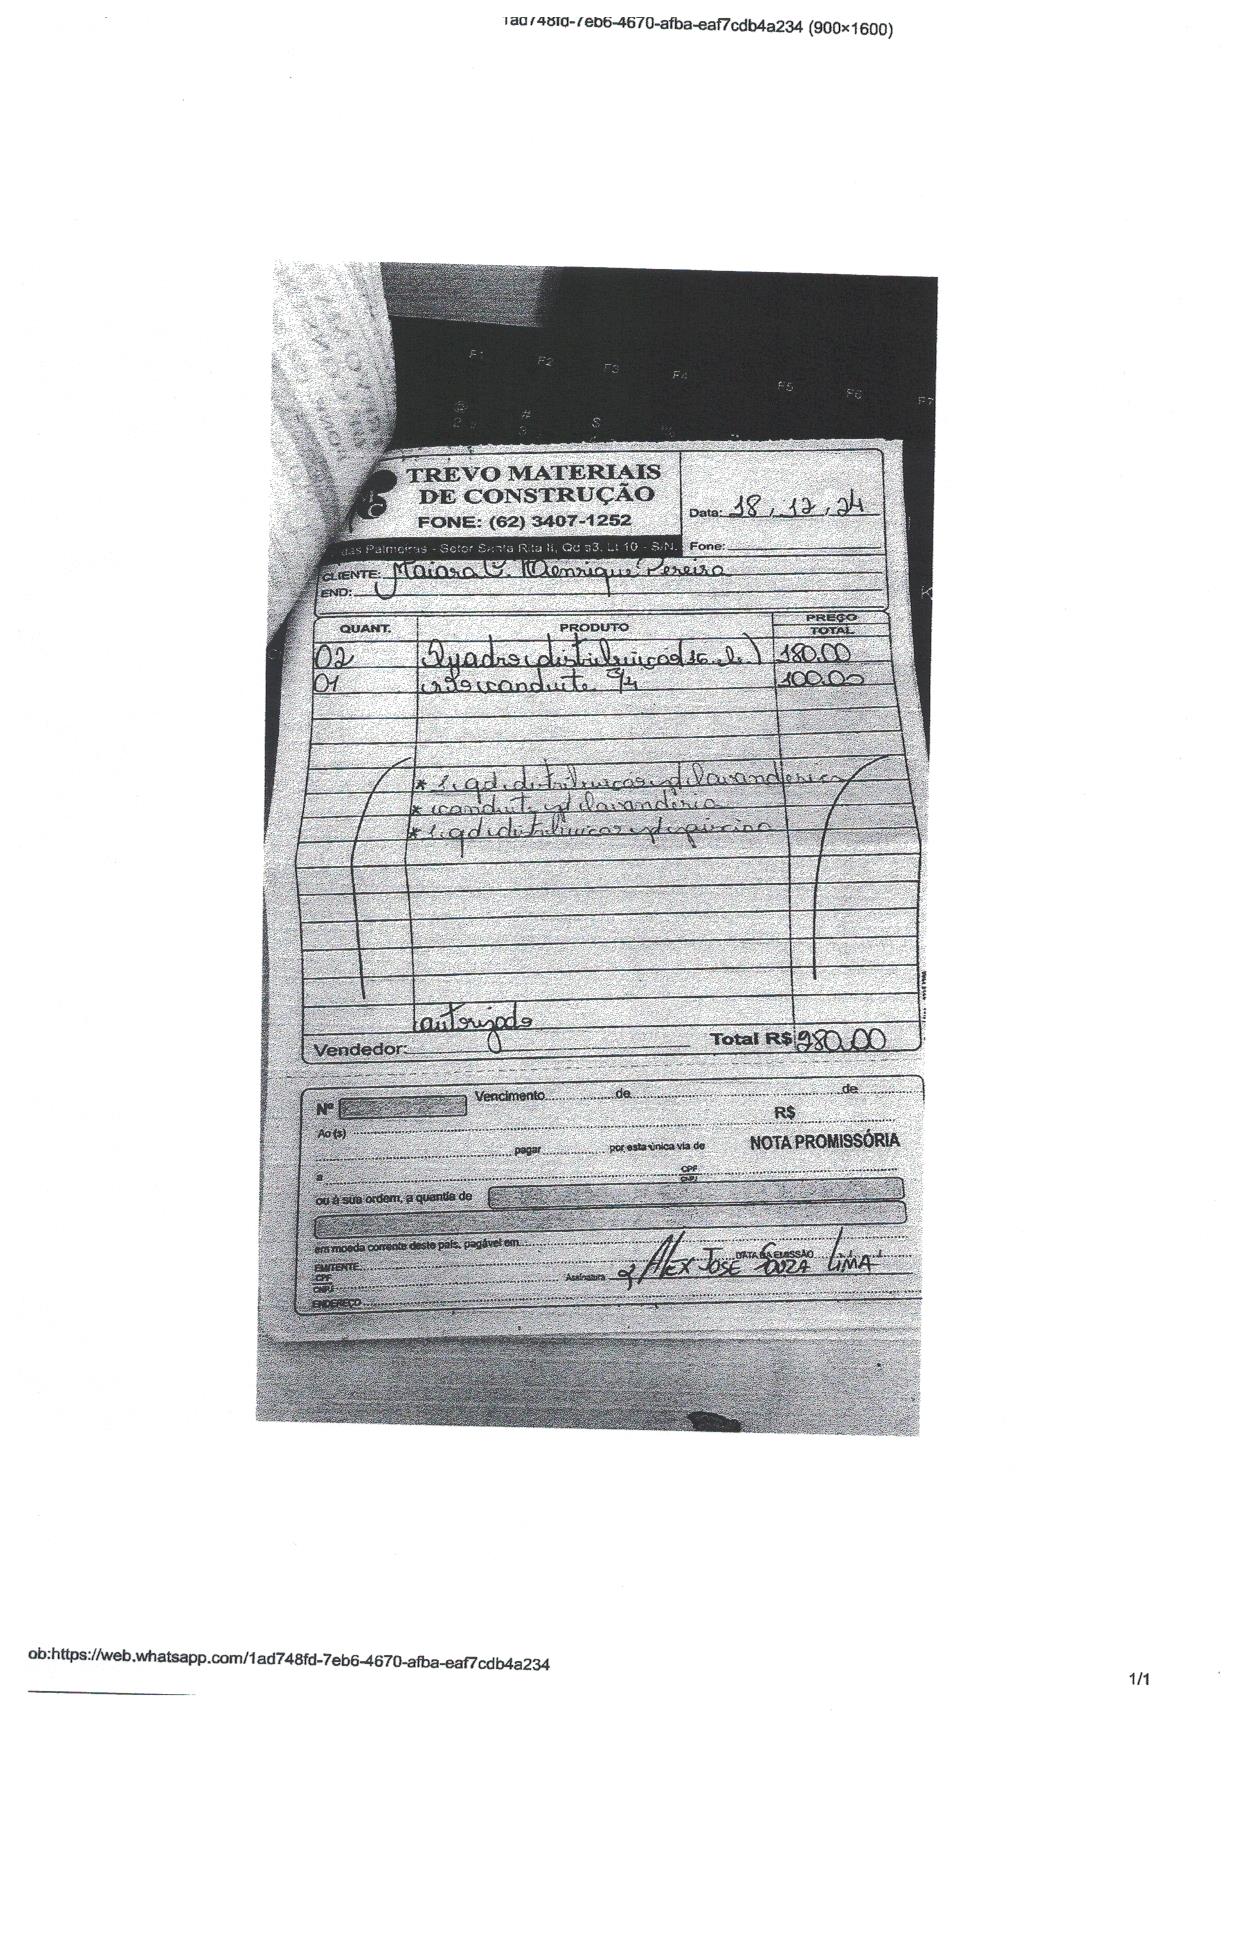 1ad748fd-7eb6-4670-afba-eaf7cdb4a234 (900×1600)
F1 F2 F3 F4 F5 F6 F7
@ # $
2 3
TREVO MATERIAIS
DE CONSTRUÇÃO
FONE: (62) 3407-1252
Data: 18, 12, 24
das Palmeiras - Setor Santa Rita II, Qd 53, Lt 10 - S/N. Fone:
CLIENTE: Maiara Henrique Pereira
END:
QUANT. PRODUTO PREÇO TOTAL
02 Quadro distribuição (16 ) 180.00
01 conduite 3/4 100.00
* qd distribuicao p/ lavanderia
* conduite p/ lavanderia
* qd distribuicao p/ piscina
autorizado
Vendedor: Total R$ 280.00
Nº Vencimento de de
R$
Ao(s)
pagar por esta única via de NOTA PROMISSÓRIA
a CPF
CNPJ
ou à sua ordem, a quantia de
em moeda corrente deste país, pagável em
EMITENTE DATA DA EMISSÃO
CPF
CNPJ Assinatura ALEX JOSE SOUZA LIMA
ENDEREÇO
ob:https://web.whatsapp.com/1ad748fd-7eb6-4670-afba-eaf7cdb4a234
1/1